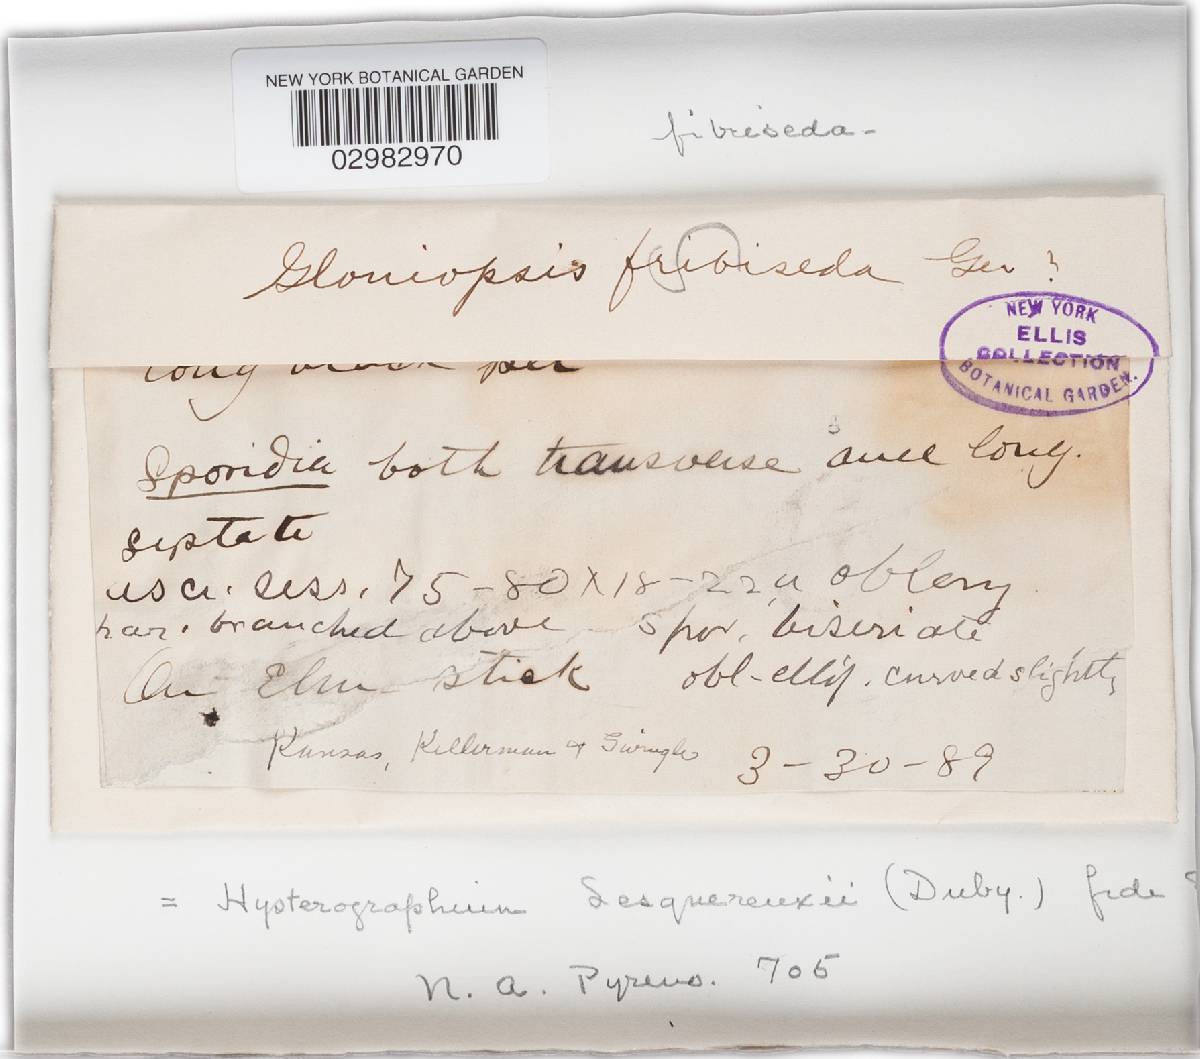 NEW YORK BOTANICAL GARDEN
02982970
fibriseda-
Gloniopsis fribiseda Ger ?
NEW YORK
ELLIS
COLLECTION
BOTANICAL GARDEN.
long black per
Sporidia both transverse and long.
septate
asci. sess. 75-80 X 18-22 u oblong
par. branched above spor. biseriate
On Elm stick obl-ellip. curved slightly
Kansas, Kellerman & Swingle 3-30-89
= Hysterographium Lesquereuxii (Duby.) fide
N. A. Pyreno. 705